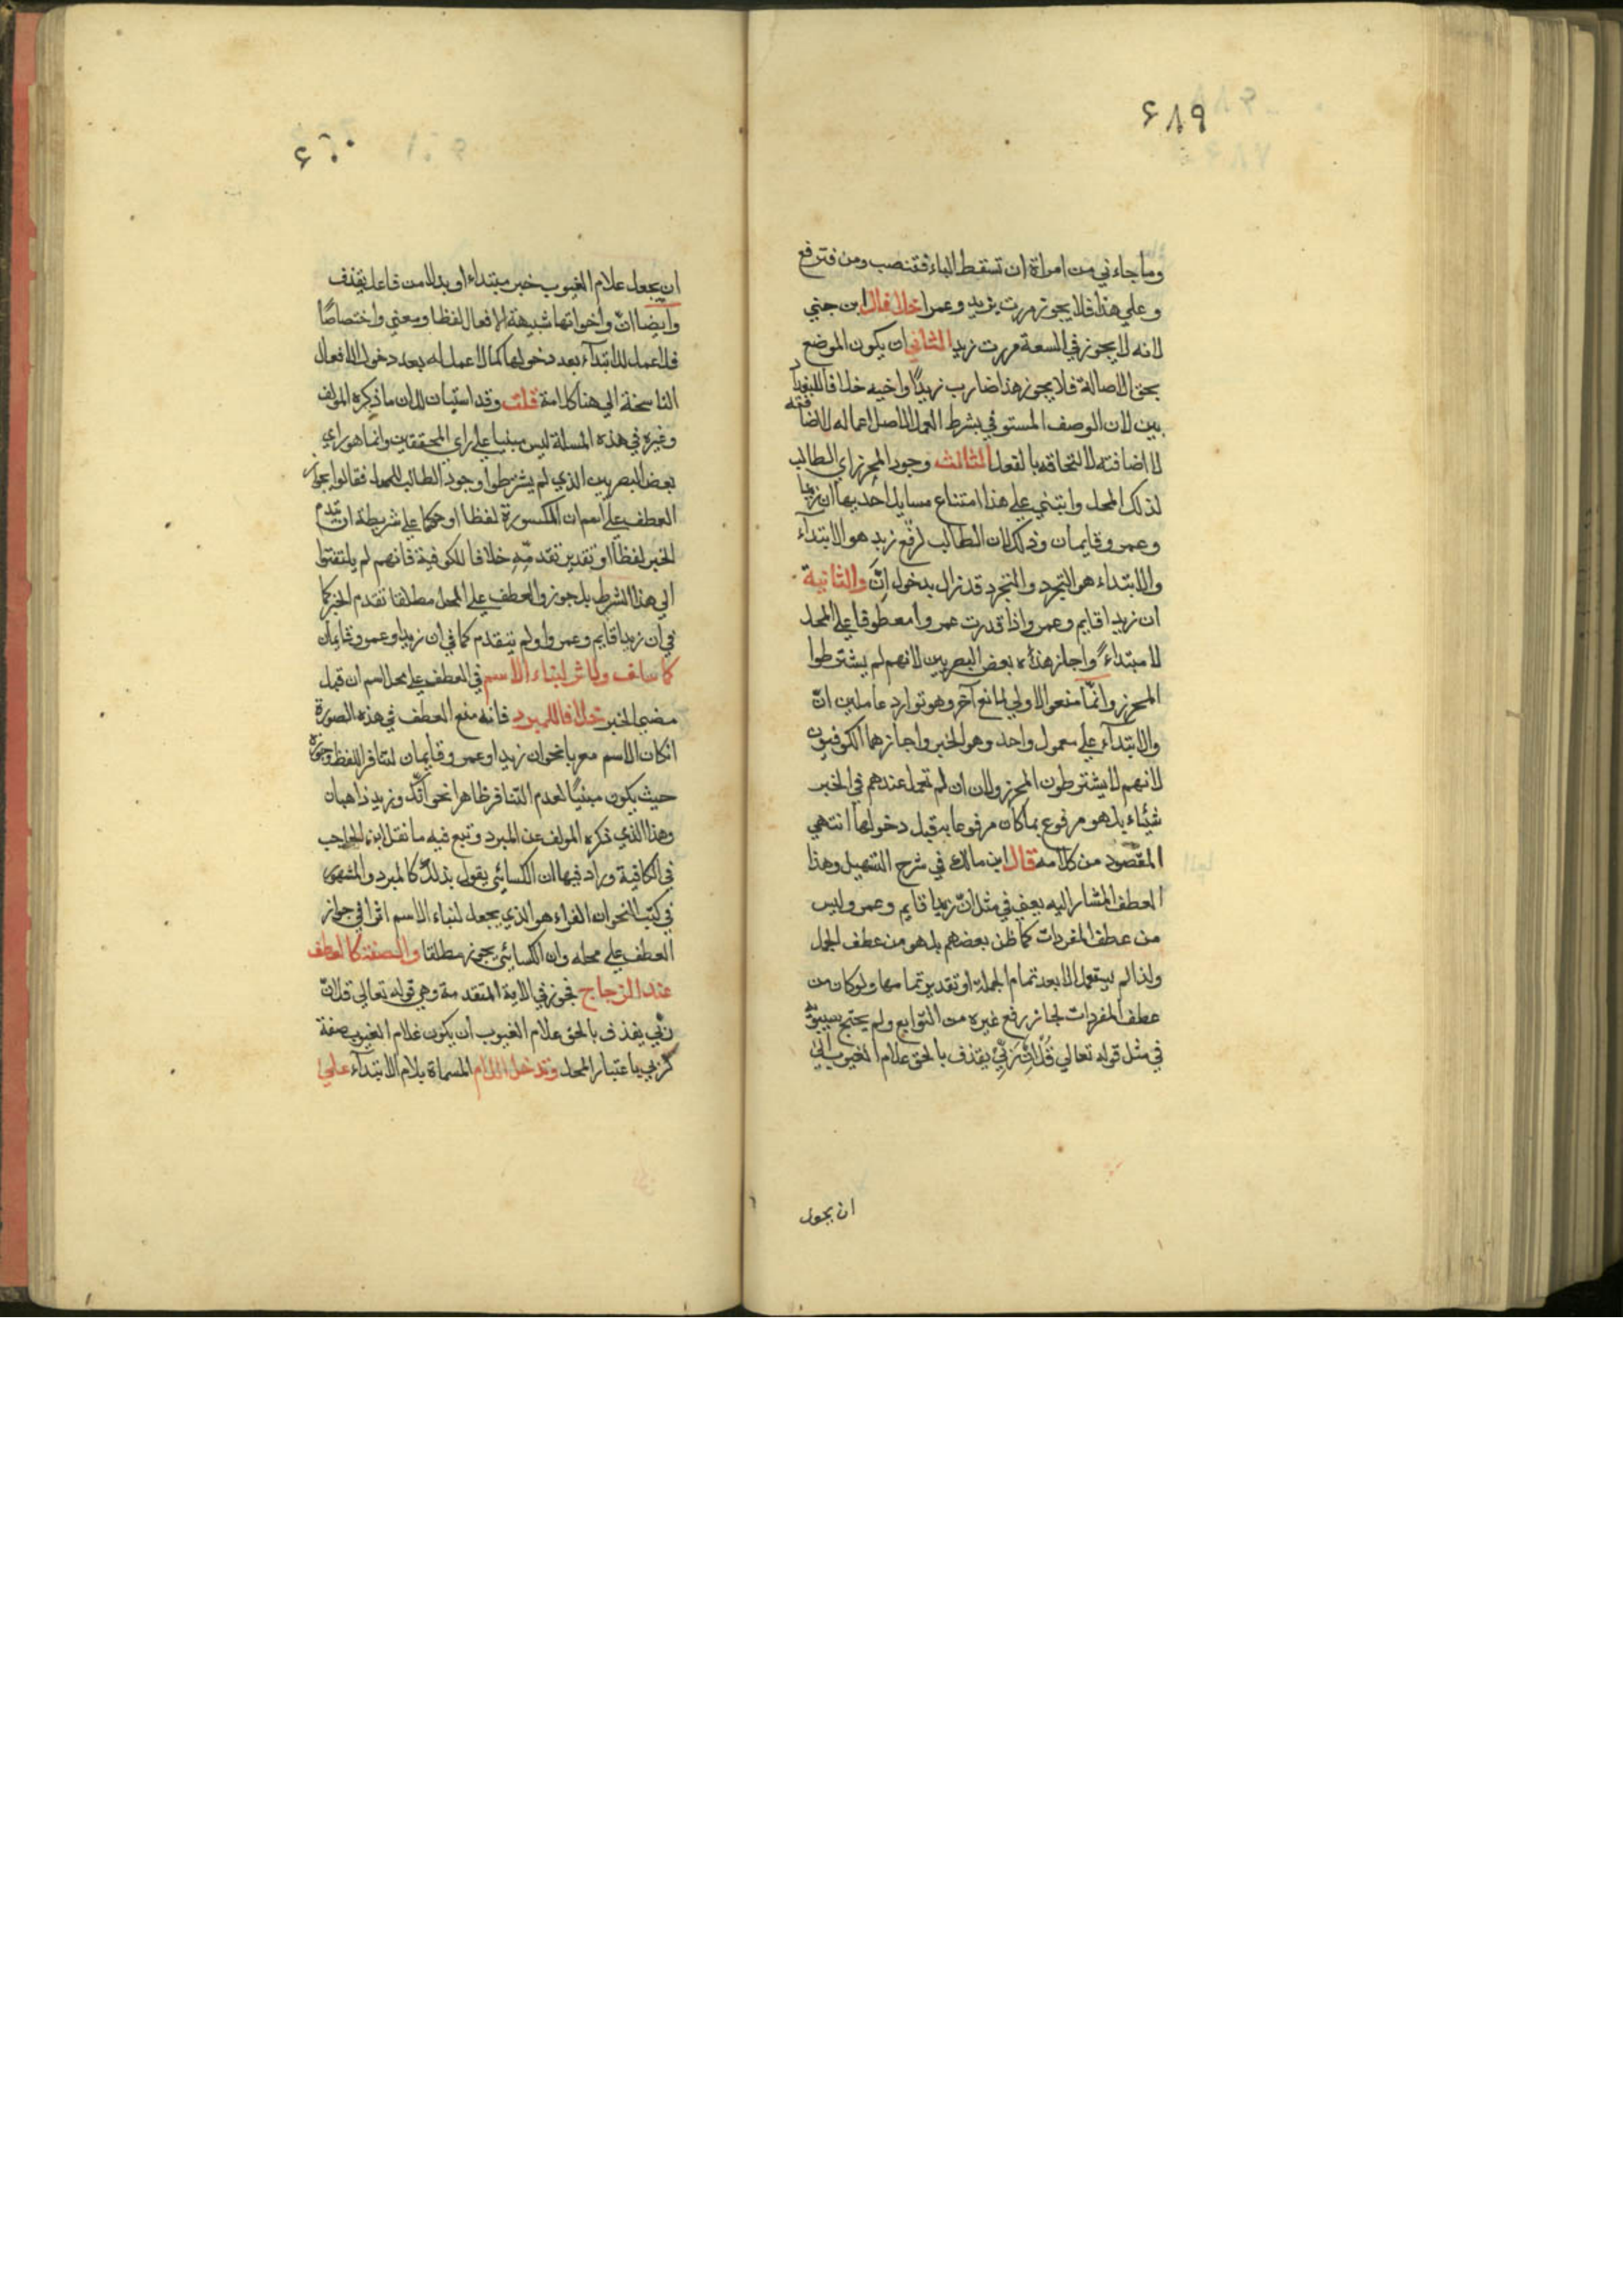 ٤٨٩
وما جاءني من امراة ان تسقط الباء فتنصب ومن فترفع
وعلي هذا فلا يجوز مررت بزيد وعمرا خلافا لابن جني
لانه لا يجوز في السعة مررت زيدا الثاني ان يكون الموضع
بحق الاصالة فلا يجوز هذا ضارب زيدًا واخيه خلافا للبغداد
يين لان الوصف المستوفي بشرط العمل الاصل اعماله لا اضافته
لا اضافته لالتحاقه بالفعل الثالث وجود المحرز اي الطالب
لذلك المحل وابتني علي هذا امتناع مسايل احديها ان زيدا
وعمرو قايمان وذلك لان الطالب لرفع زيد هو الابتدآء
والابتداء هو التجرد والتجرد قد زال بدخول انّ والثانية
ان زيدا قايم وعمرو اذا قدرت عمروا معطوفا علي المحل
لا مبتداءً واجاز هذه بعض البصريين لانهم لم يشترطوا
المحرز وانمّا منعوا الاولي لمانع آخر وهو توارد عاملين انّ
والابتدآء علي معمول واحد وهو الخبر واجازهما الكوفيون
لانهم لا يشترطون المحرز ولان ان لم تعمل عندهم في الخبر
شيئاء بل هو مرفوع بما كان مرفوعا به قبل دخولها انتهي
المقصود من كلامه قال ابن مالك في شرح التسهيل وهذا
العطف المشار اليه يعني في مثل انّ زيدا قايم وعمرو ليس
من عطف المفردات كما ظن بعضهم بل هو من عطف الجمل
ولذا لم يستعمل الا بعد تمام الجملة او تقدير تمامها ولو كان من
عطف المفردات لجاز رفع غيره من التوابع ولم يحتج سيبويه
في مثل قوله تعالي قُلْ اِنَّ رَبِّيْ يقذف بالحق علام الغيوب الي
ان يجعل
٤٩٠
ان يجعل علام الغيوب خبر مبتداء او بدلا من فاعل يقذف
وايضا انّ واخواتها شبيهة بالافعال لفظا ومعني واختصاصًا
فلا عمل للابتدآء بعد دخولها كما لا عمل له بعد دخول الافعال
الناسخة الي هنا كلامه قلت وقد استبان لك ان ما ذكره المولف
وغيره في هذه المسالة ليس مبنيا علي راي المحققين وانما هو راي
بعض البصريين الذي لم يشترطوا وجود الطالب للمحل فقالوا بجواز
العطف علي اسم ان المكسورة لفظا او حكما علي شريطة ان تقدم
الخبر لفظا او تقدير تقدمّهِ خلافا للكوفية فانهم لم يلتفتوا
الي هذا الشرط بل جوزوا العطف علي المحل مطلقا تقدم الخبر كما
في ان زيدا قايم وعمرو او لم يتقدم كما في ان زيدا وعمرو قايمان
كما سلف ولا اثر لبناء الاسم في العطف علي محل اسم ان قبل
مضي الخبر خلافا للمبرد فانه منع العطف في هذه الصورة
ان كان الاسم معربا نحو ان زيدا وعمرو قايمان لتنافر اللفظ وجوزه
حيث يكون مبنيًا لعدم التنافر ظاهرا نحو انّك وزيد ذاهبان
وهذا الذي ذكره المولف عن المبرد وتبع فيه ما نقل ابن الحاجب
في الكافية وزاد فيها ان الكسائي يقول بذلك كالمبرد والمشهور
في كتب النحو ان الفراء هو الذي يجعل لبناء الاسم اثرا في جواز
العطف علي محله وان الكسائي يجوز مطلقا والصفة كالعطف
عند الزجاج فجوز في الاية المتقدمة وهي قوله تعالي قل انّ
ربّي يقذف بالحق علام الغيوب ان يكون علام الغيوب صفة
لربي باعتبار المحل وتدخل اللام المسماة بلام الابتدآء علي